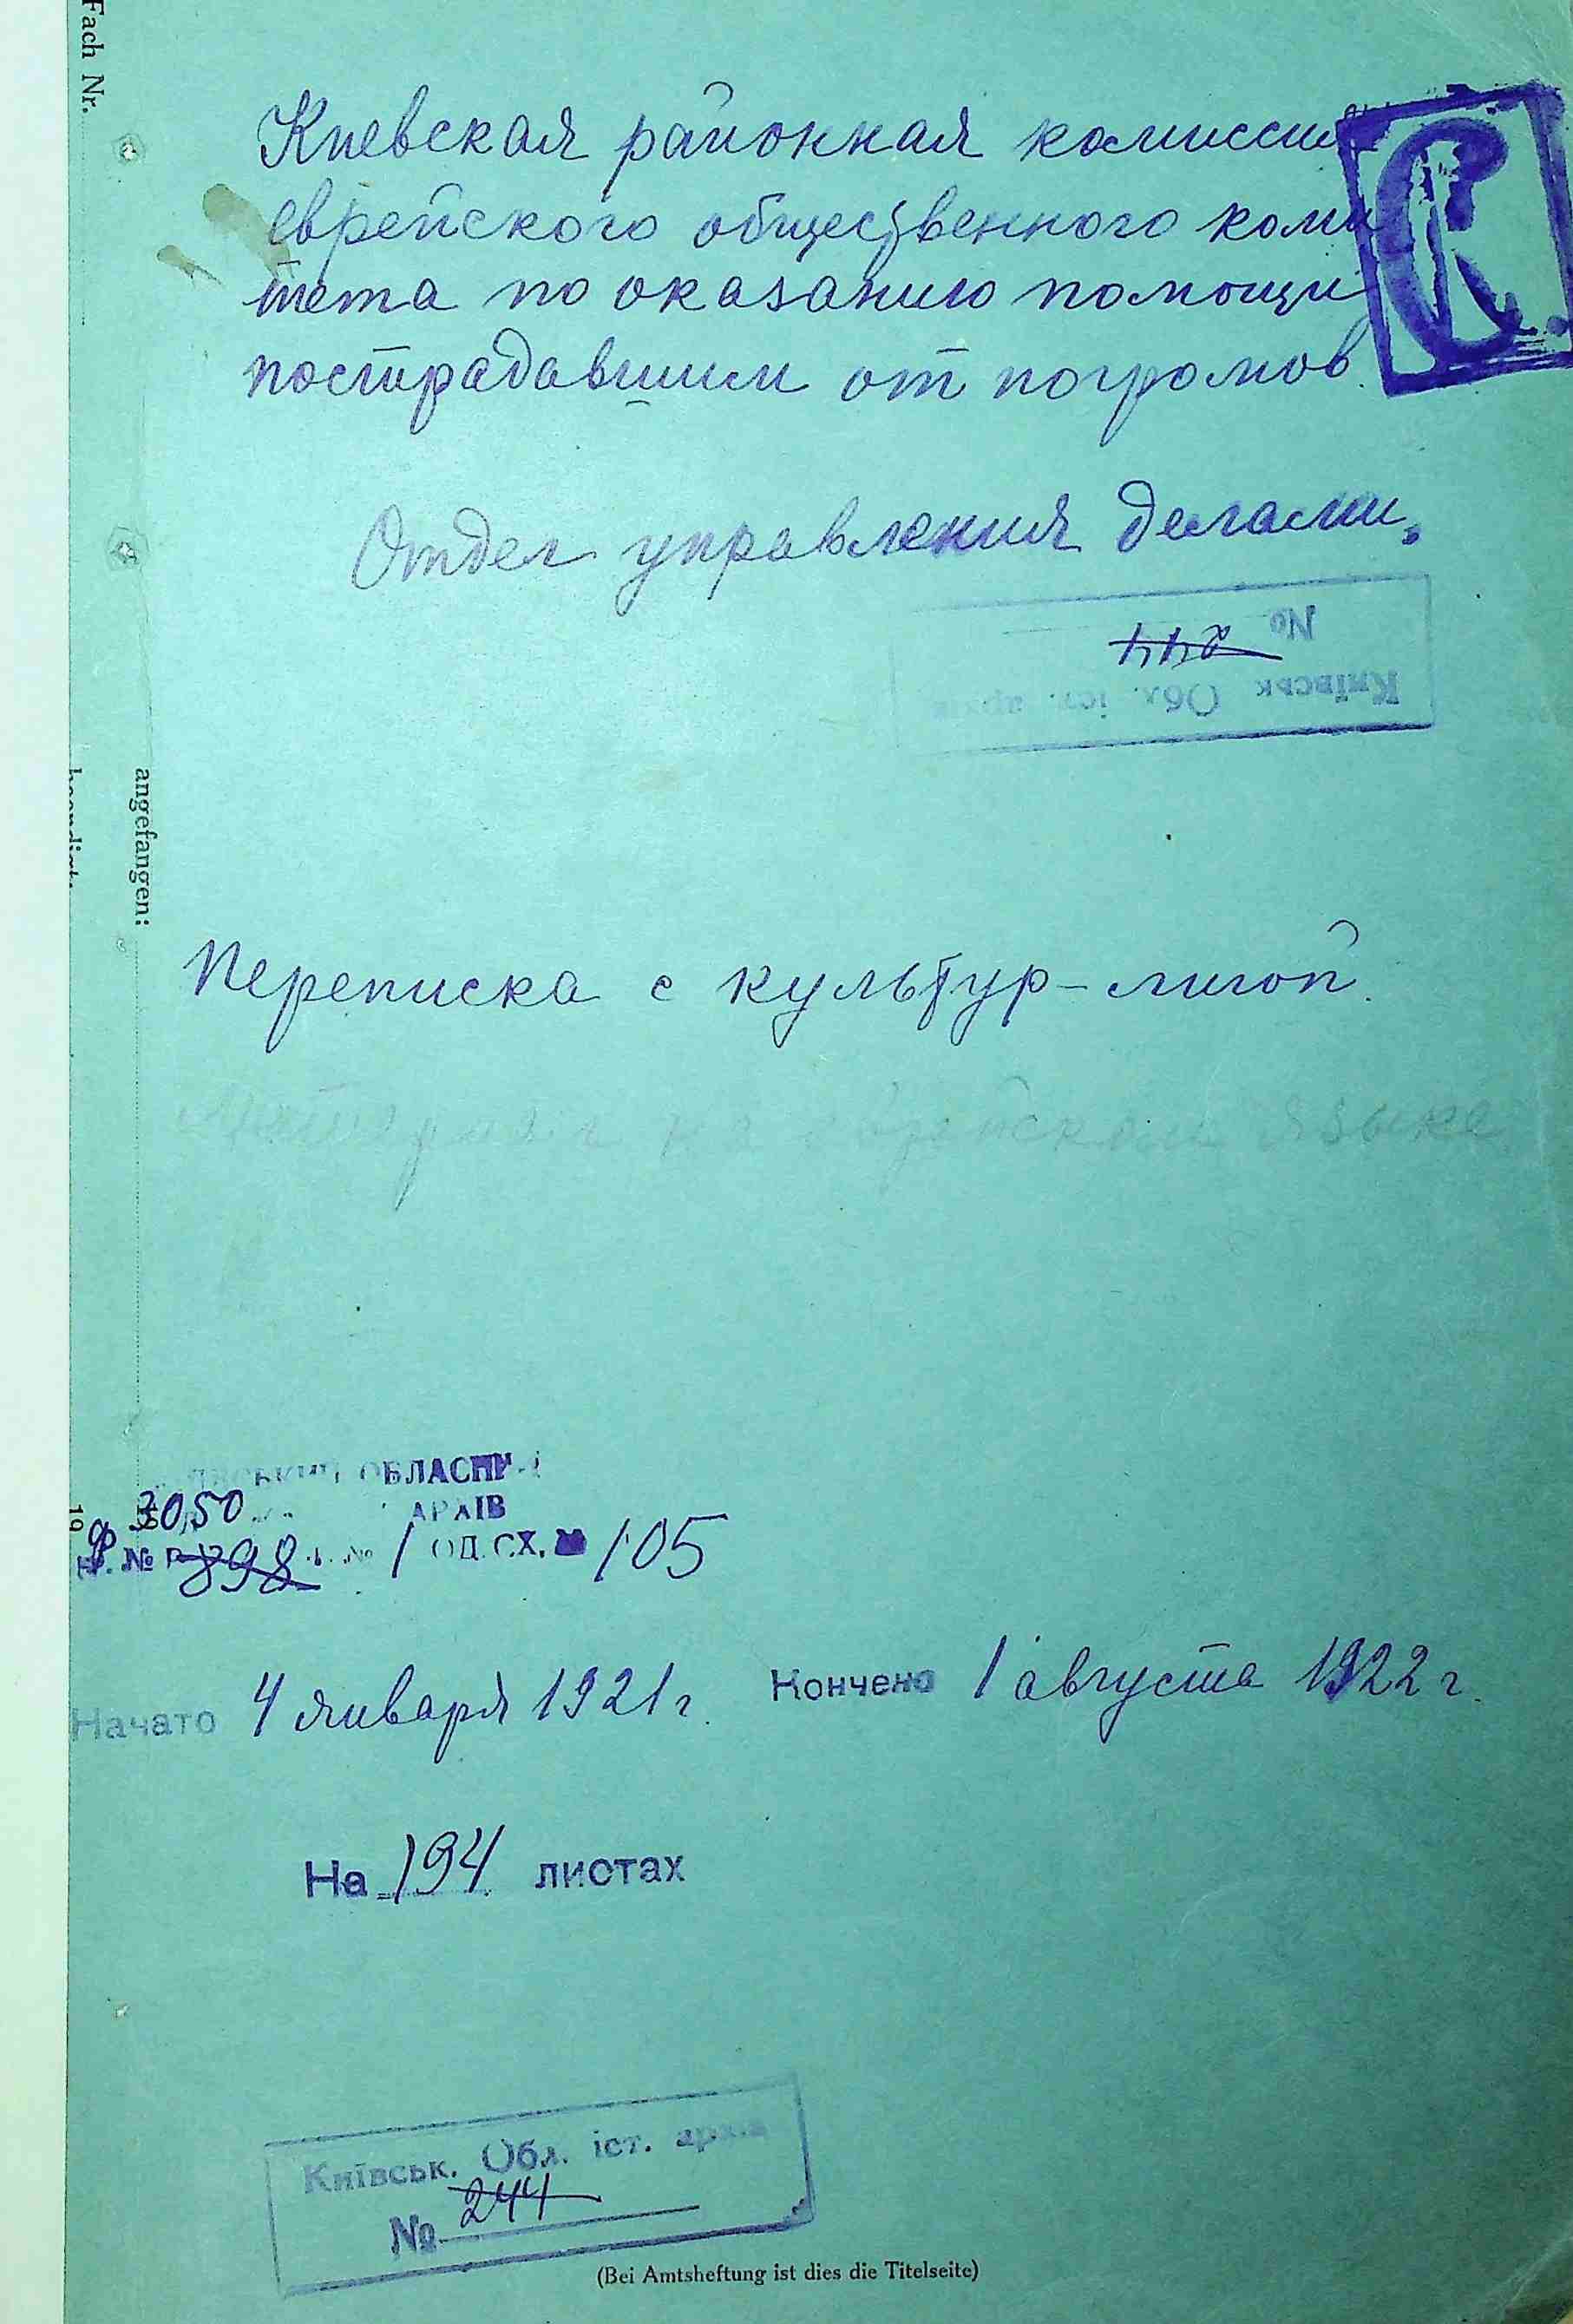 Fach Nr.
Киевская районная комиссия
еврейского общественного коми
тета по оказанию помощи
пострадавшим от погромов.
Отдел управления делами.
№ 244
Київськ. Обл. іст. архів
angefangen:
beendigt:
Переписка с культур-лигой.
Материал на еврейском языке
ОБЛАСНИЙ
3050 АРХІВ
ф. № Р-898 № 1 ОД.СХ. 105
19
Начато 4 января 1921 г. Кончено 1 августа 1922 г.
На 194 листах
Київськ. Обл. іст. архів
№ 244
(Bei Amtsheftung ist dies die Titelseite)